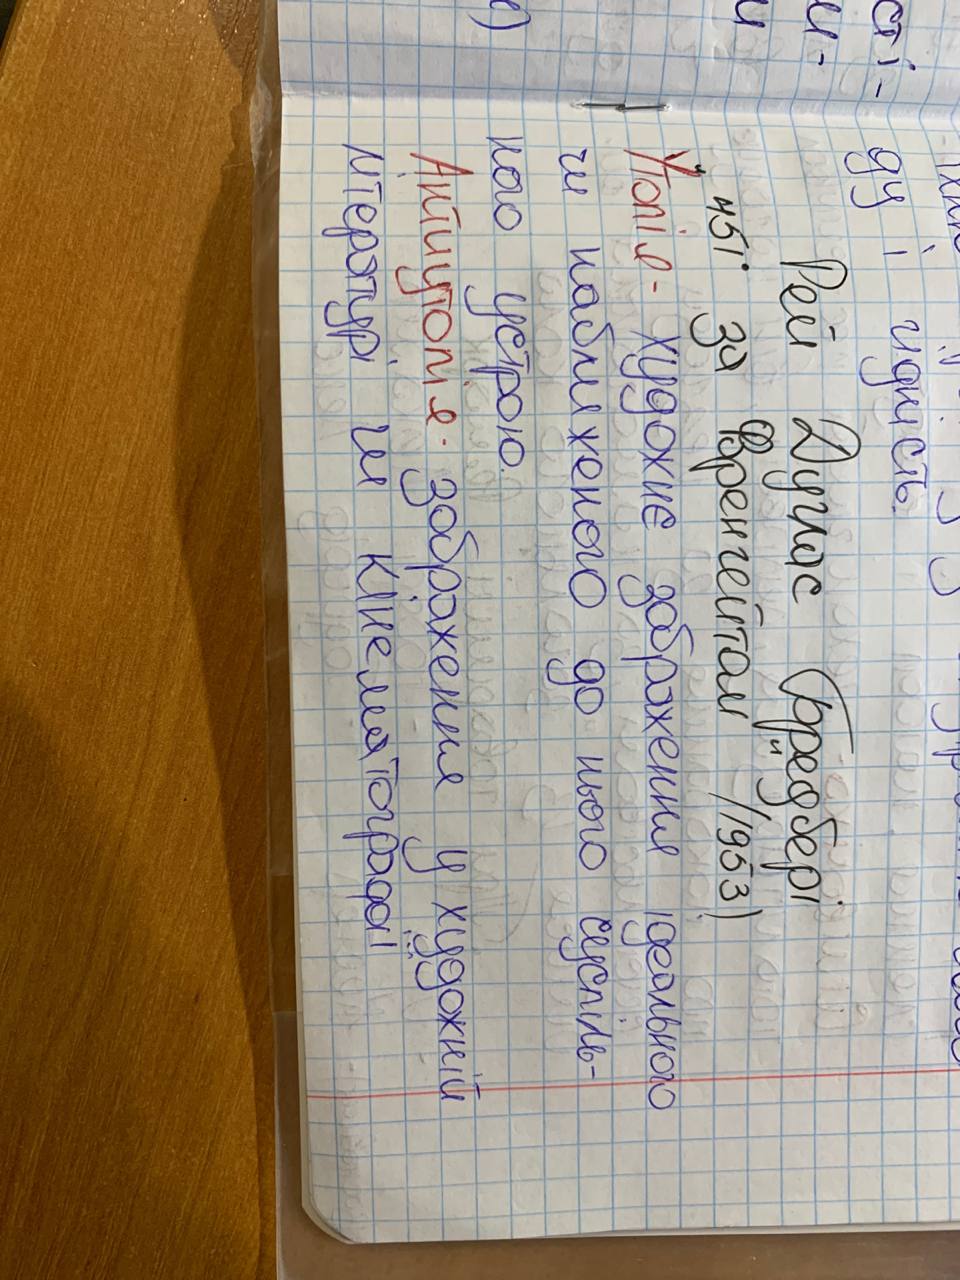 ду і гідність.
Рей Дуглас Бредбері
"451° за Френгейтом" /1953)
Утопія - художнє зображення ідеального
чи наближеного до нього суспіль-
ного устрою.
Антиутопія - зображення у художній
літературі чи кінематографі